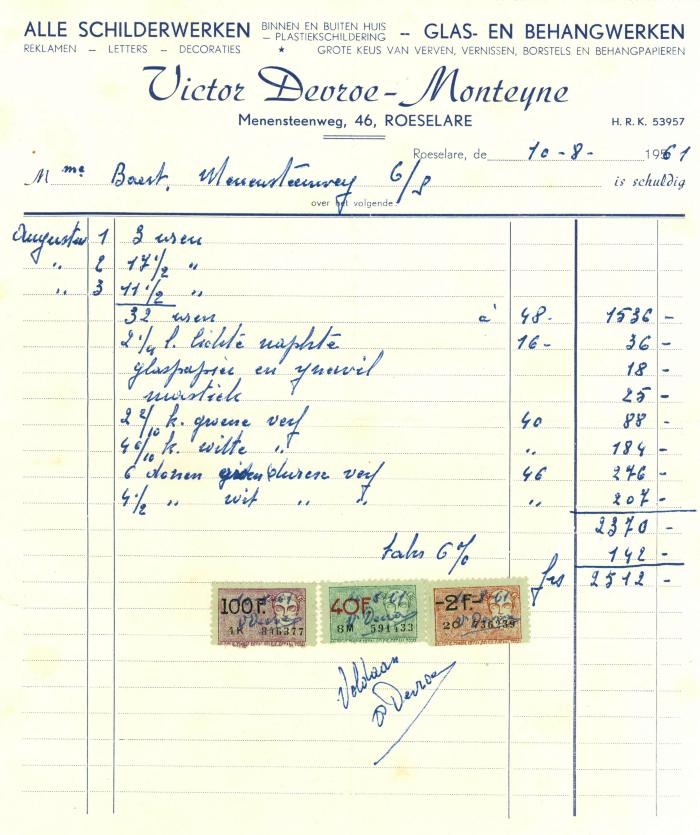 ALLE SCHILDERWERKEN BINNEN EN BUITEN HUIS — PLASTIEKSCHILDERING — GLAS- EN BEHANGWERKEN
REKLAMEN — LETTERS — DECORATIES * GROTE KEUS VAN VERVEN, VERNISSEN, BORSTELS EN BEHANGPAPIEREN
Victor Devroe-Monteyne
Menensteenweg, 46, ROESELARE H. R. K. 53957
Roeselare, de 10-8- 1961
Mme Baert, Menensteenweg 6/8 is schuldig
over het volgende:
Augustus 1 3 uren
" 2 17 1/2 "
" 3 11 1/2 "
32 uren à 48- 1536 -
2 1/4 l. lichte naphte 16- 36 -
glaspapier en 18 -
mastiek 25 -
2 2/10 k. groene verf 40 88 -
4 6/10 k. witte " " 184 -
6 dozen duren verf 46 276 -
4 1/2 " wit " " " 207 -
2370 -
taks 6% 142 -
frs 2512 -
100 F. 40F -2F-
8M 591433
Voldaan
Devroe